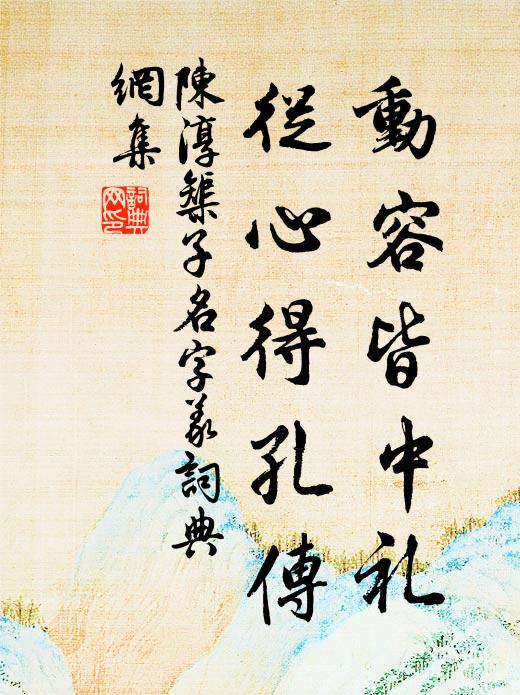 動容皆中礼
從心得孔傳
陳淳築子名字義詞典
網集
詞典
网印